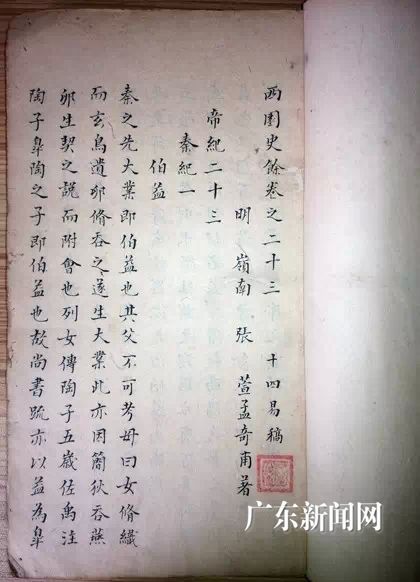 西園史餘卷之二十三 十四易稿
明嶺南張萱孟奇甫著
帝紀二十三
秦紀一
伯益
秦之先大業即伯益也其父不可考母曰女脩織
而玄鳥遺卵脩吞之遂生大業此亦因簡狄吞燕
卵生契之說而附會也列女傳陶子五歲佐禹注
陶子皐陶之子即伯益也故尚書疏亦以益為皐
广东新闻网